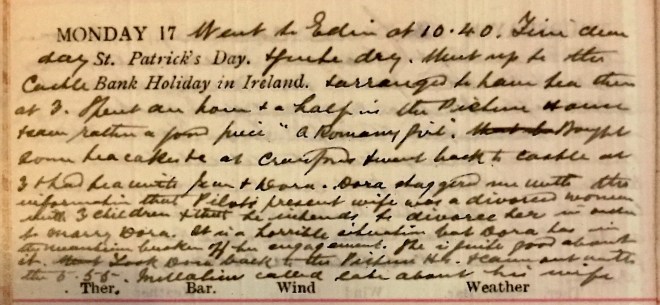 MONDAY 17 Went to Edin at 10.40. Fine clear
day St. Patrick's Day. & quite dry. Went up to the
Castle Bank Holiday in Ireland. & arranged to have tea there
at 3. Spent an hour & a half in the Picture House
& saw rather a good piece "A Romany Girl". Bought
some teacakes &c at Crawfords & went back to castle at
3 & had tea with Jean & Dora. Dora staggered me with the
information that Pilot's present wife was a divorced woman
with 3 children & that he intends to divorce her in order
to marry Dora. It is a horrible situation but Dora has in
the meantime broken off her engagement. She is quite good about
it. Took Dora back to the Picture Ho. & came out with
the 5.55. called late about his wife
Ther. Bar. Wind Weather